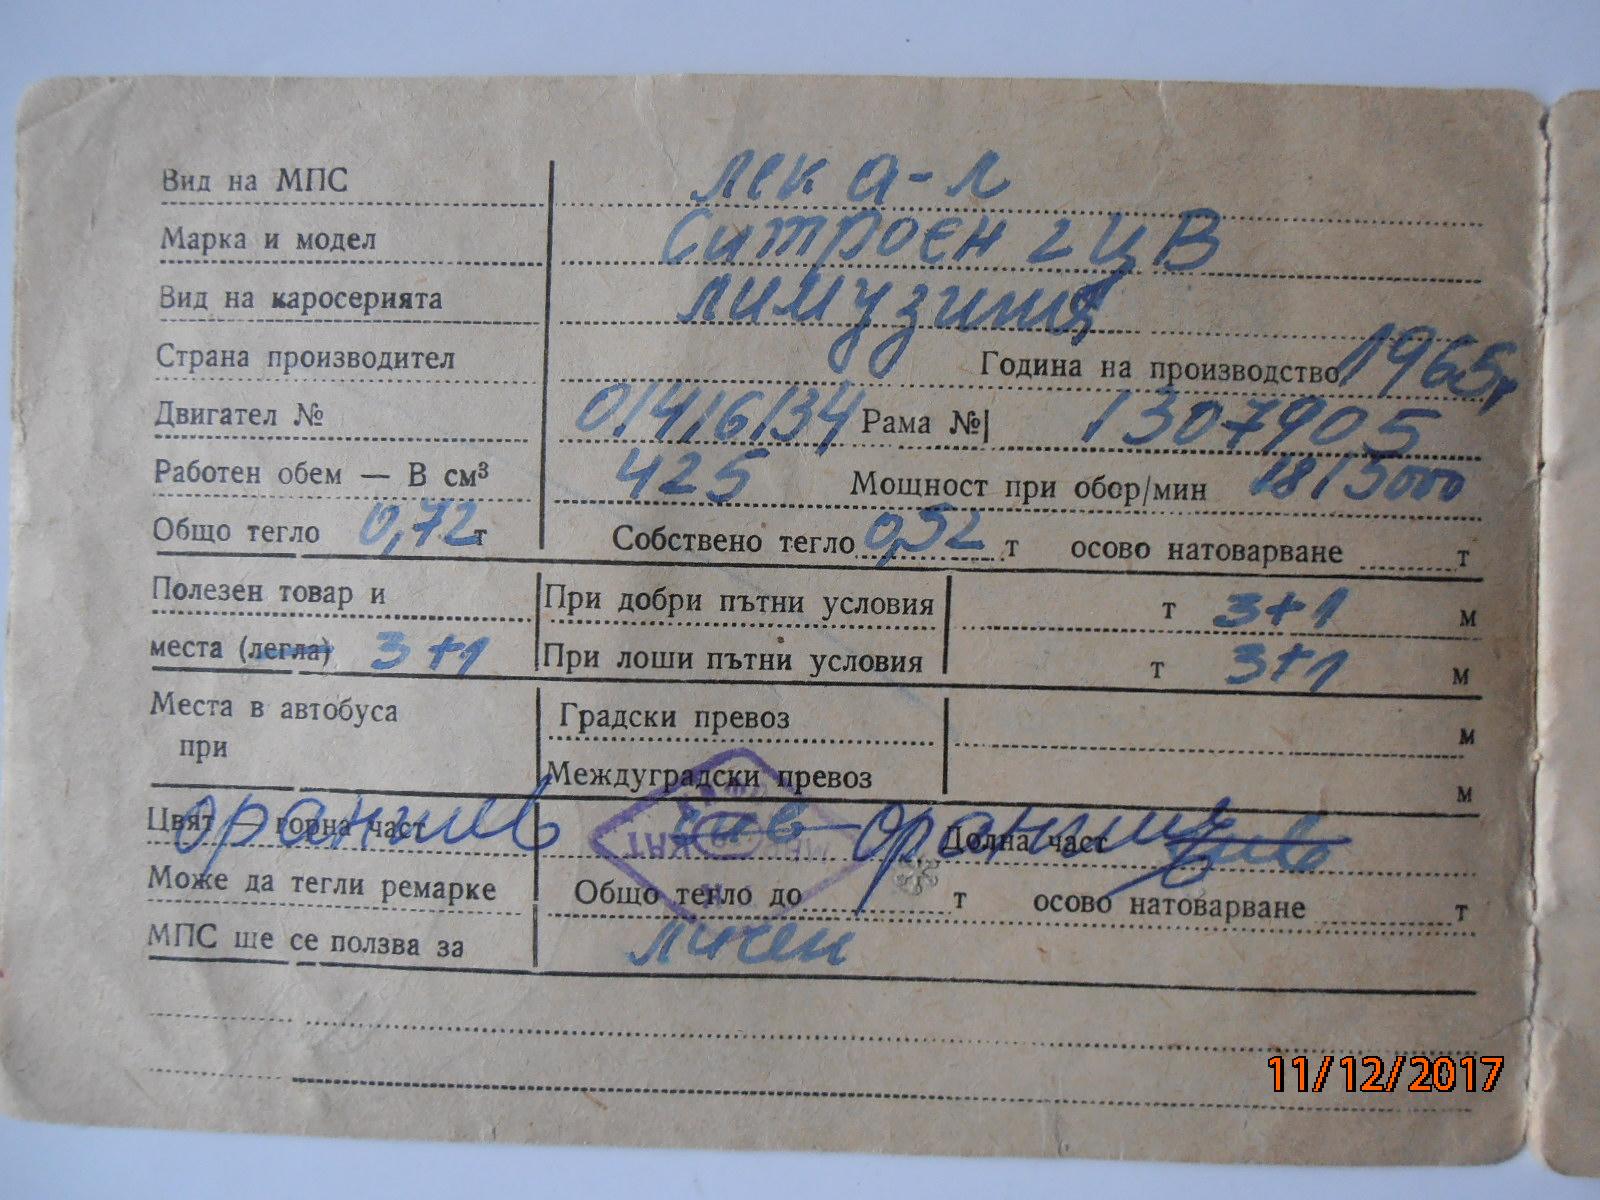 Вид на МПС лек а-л
Марка и модел Ситроен 2 ЦВ
Вид на каросерията лимузина
Страна производител Година на производство 1965 г
Двигател № 01416134 Рама № 1307905
Работен обем — В см³ 425 Мощност при обор/мин 18/5000
Общо тегло 0,72 т Собствено тегло 0,52 т осово натоварване т
Полезен товар и При добри пътни условия т 3+1 м
места (легла) 3+1 При лоши пътни условия т 3+1 м
Места в автобуса Градски превоз м
при Междуградски превоз м
Цвят горна част оранжев сив Долна част оранжев сив
Може да тегли ремарке Общо тегло до т осово натоварване т
МПС ще се ползва за личен
11/12/2017